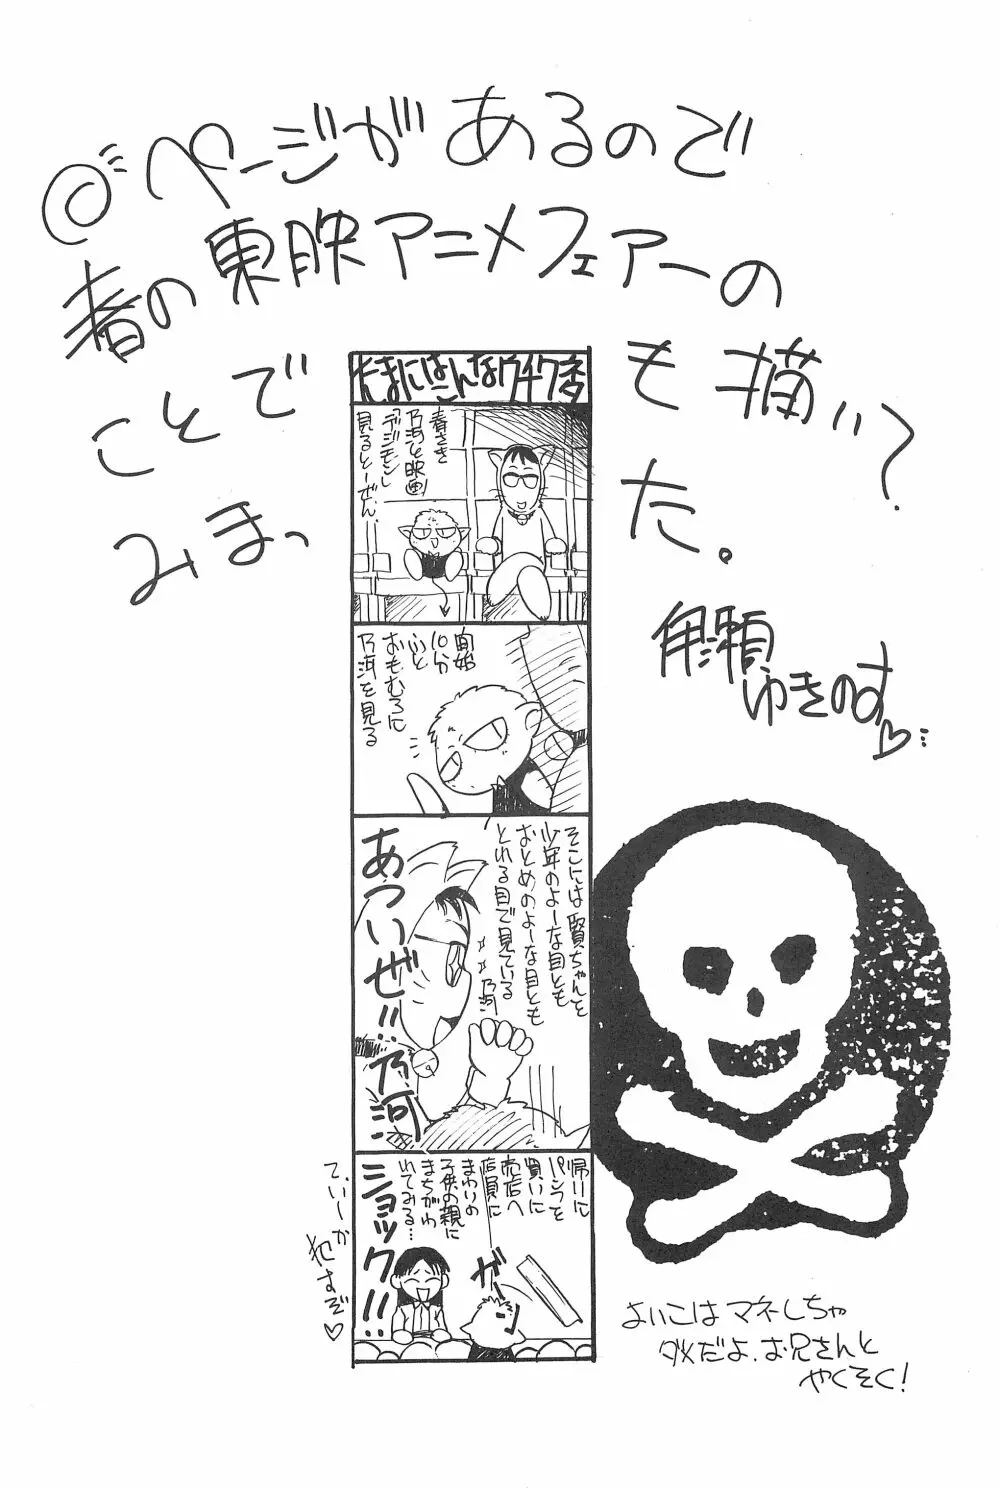 ◎ページがあるので
春の東映アニメフェアーの
ことでも描い?
みまった。
角瀬
ゆきのす♡
たまにはこんなウチワネタ
春さき
乃河と映画
「デジモン」
見るとーぜん、
開始
10分
ふと
おもむろに
乃河を見る
そこには賢ちゃんと
少年のよーな目とも
おとめのよーな目とも
とれる目で見ている
乃河
あついぜ!!乃河!!
帰りに
パンフを
買いに
売店へ
店員に
まわりの
子供の親に
まちがわ
れてみる…
ガーン
ショック!!
てゆーか
犯すぞ♡
よいこはマネしちゃ
ダメだよ、お兄さんと
やくそく!